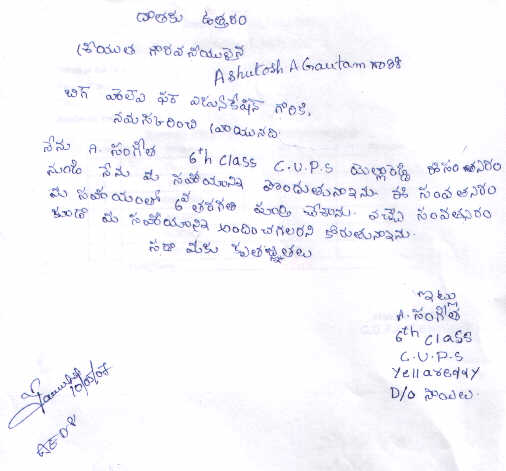 దాతకు ఉత్తరం
శ్రీయుత గౌరవనీయులైన
Ashutosh A Gautam గారికి
బిగ్ హెల్ప్ ఫర్ ఎడ్యుకేషన్ గారికి,
నమస్కరించి వ్రాయునది.
నేను A. సంగీత 6th class C.U.P.S యెల్లారెడ్డి ఈ సంవత్సరం
నుండి నేను మీ సహాయాన్ని పొందుతున్నాను. ఈ సంవత్సరం
మీ సహాయంతో 6వ తరగతి పూర్తి చేశాను. వచ్చే సంవత్సరం
కూడా మీ సహాయాన్ని అందించగలరని కోరుతున్నాను.
సదా మీకు కృతజ్ఞతలు
ఇట్లు
A. సంగీత
6th class
C.U.P.S
Yellareddy
D/o సాయిలు.